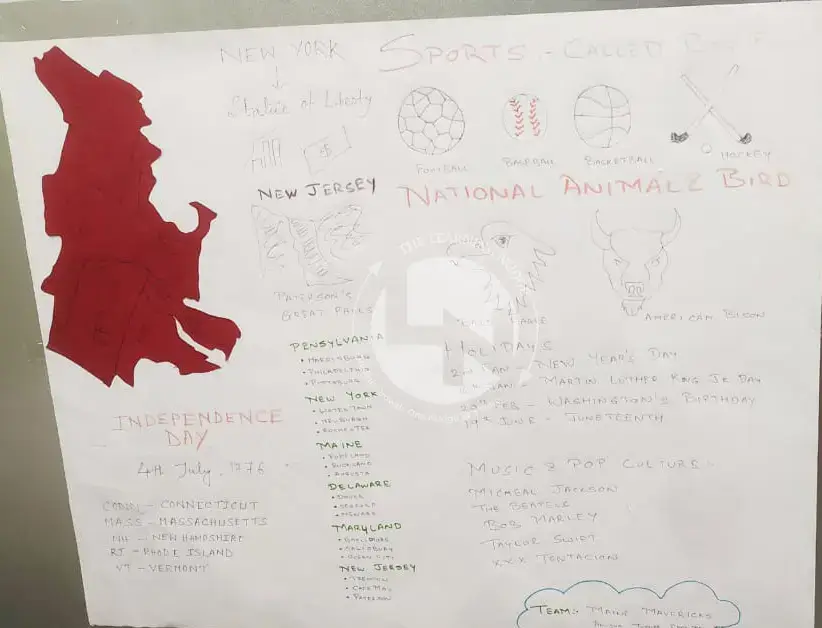 NEW YORK
Statue of Liberty
SPORTS - CALLED
FOOTBALL
BASEBALL
BASKETBALL
HOCKEY
NEW JERSEY
NATIONAL ANIMAL & BIRD
PATERSON'S
GREAT FALLS
BALD EAGLE
AMERICAN BISON
PENSYLVANIA
• HARRISBURG
• PHILADELPHIA
• PITTSBURG
NEW YORK
• NEWBURGH
• ROCHESTER
MAINE
• PORTLAND
• AUGUSTA
DELAWARE
• DOVER
• SEAFORD
• NEWARK
MARYLAND
• SALISBURY
• OCEAN CITY
NEW JERSEY
• TRENTON
• CAPE MAY
• PATERSON
HOLIDAYS
2nd JAN - NEW YEAR'S DAY
JAN - MARTIN LUTHER KING JR DAY
20th FEB - WASHINGTON'S BIRTHDAY
19th JUNE - JUNETEENTH
INDEPENDENCE
DAY
4th July, 1776
CONN - CONNECTICUT
MASS - MASSACHUSETTS
NH - NEW HAMPSHIRE
RI - RHODE ISLAND
VT - VERMONT
MUSIC & POP CULTURE
MICHEAL JACKSON
THE BEATELS
BOB MARLEY
TAYLOR SWIFT
XXX TENTACION
TEAM: MAINE MAVERICKS